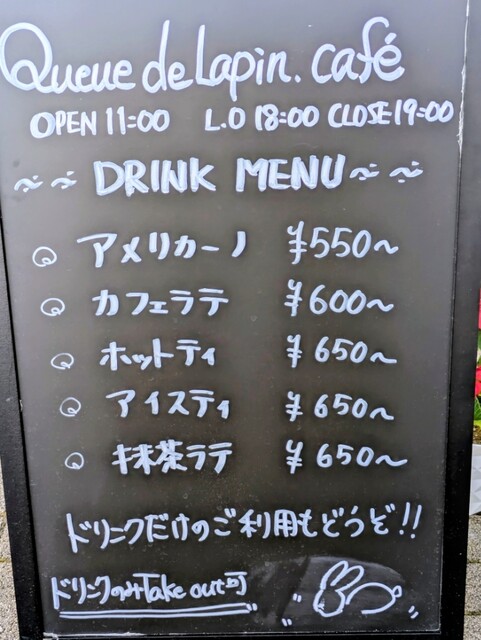 Queue de Lapin. café
OPEN 11=00 L.O 18=00 CLOSE 19=00
~~ DRINK MENU ~~
アメリカーノ ¥550~
カフェラテ ¥600~
ホットティ ¥650~
アイスティ ¥650~
抹茶ラテ ¥650~
ドリンクだけのご利用もどうぞ!!
ドリンクのみTake out可